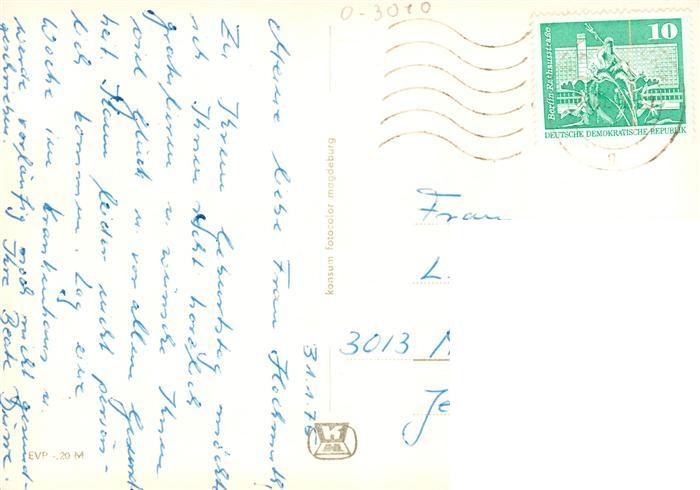 Meine liebe Frau
Zu Ihrem Geburtstag möchte
ich Ihnen recht herzlich
gratulieren u. wünsche Ihnen
viel Glück u. vor allem Gesund-
heit. Kann leider nicht persön-
lich kommen. Lag eine
Woche im Krankenhaus u.
werde vorläufig noch nicht gesund-
geschrieben. Ihre Beate
31.1.76
konsum fotocolor magdeburg
EVP -,20 M
0-3010
10
Berlin, Rathausstraße
DEUTSCHE DEMOKRATISCHE REPUBLIK
Frau
L.
3013 M
Je